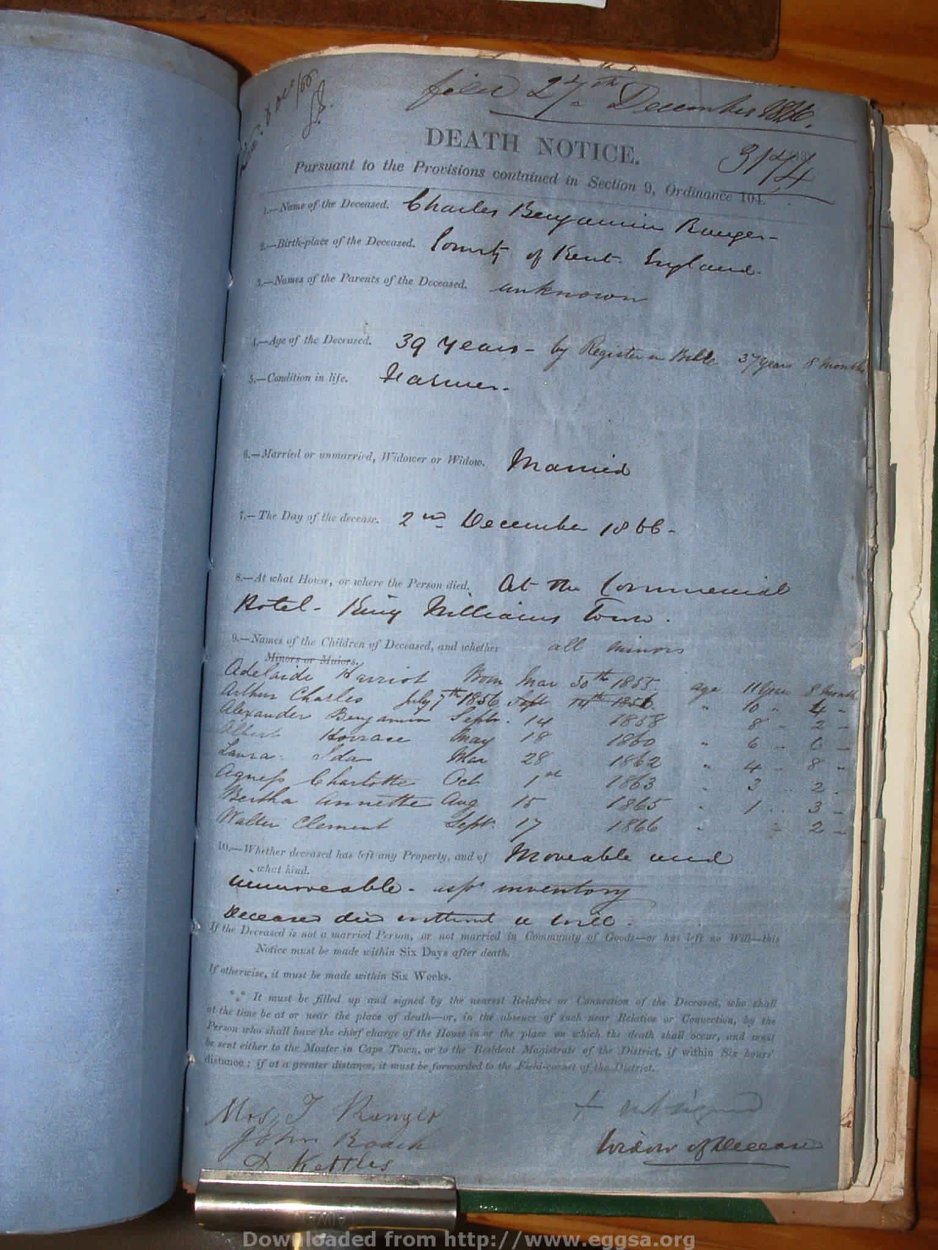 filed 27th December 1866.
3174
DEATH NOTICE.
Pursuant to the Provisions contained in Section 9, Ordinance 104.
1.—Name of the Deceased. Charles Benjamin Ranger-
2.—Birth-place of the Deceased. County of Kent England-
3.—Names of the Parents of the Deceased. unknown
4.—Age of the Deceased. 39 years - by Register in Bible 37 years 8 months
5.—Condition in life. Farmer.
6.—Married or unmarried, Widower or Widow. Married
7.—The Day of the decease. 2nd December 1866-
8.—At what House, or where the Person died. At the Commercial
Hotel - King Williams Town.
9.—Names of the Children of Deceased, and whether all minors
Minors or Majors.
Adelaide Harriot Born Mar 30th 1855. age 11 years 8 months
Arthur Charles July 7th 1856 Sept 14th 1856 " 10 " 4 "
Alexander Benjamin Sept. 14 1858 " 8 " 2 -
Albert Horrace May 18 1860 " 6 " 6 -
Laura Ida Mar 28 1862 " 4 " 8 -
Agness Charlotte Oct 1st 1863 " 3 " 2 -
Bertha Annette Aug 15 1865 " 1 " 3 -
Walter Clement Sept. 17 1866 " " 2 -
10.—Whether deceased has left any Property, and of Moveable and
what kind.
immoveable - as pr inventory
Deceased died without a will.
If the Deceased is not a married Person, or not married in Community of Goods—or has left no Will—this
Notice must be made within Six Days after death.
If otherwise, it must be made within Six Weeks.
*** It must be filled up and signed by the nearest Relative or Connection of the Deceased, who shall
at the time be at or near the place of death—or, in the absence of such near Relative or Connection, by the
Person who shall have the chief charge of the House in or the place on which the death shall occur, and must
be sent either to the Master in Cape Town, or to the Resident Magistrate of the District, if within Six hours'
distance; if at a greater distance, it must be forwarded to the Field-cornet of the District.
Mrs J Ranger + not signed
John Roach Widow of Deceased
D Kettles
Downloaded from http://www.eggsa.org